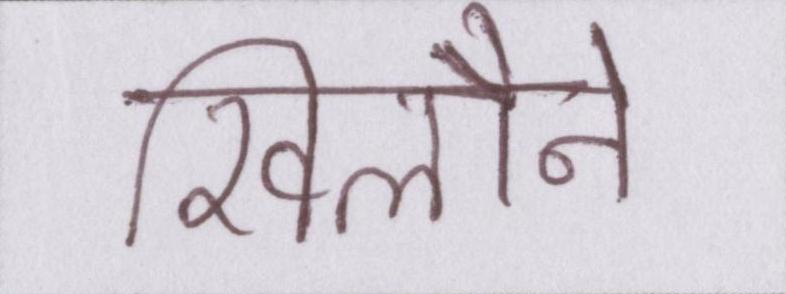 खिलौने